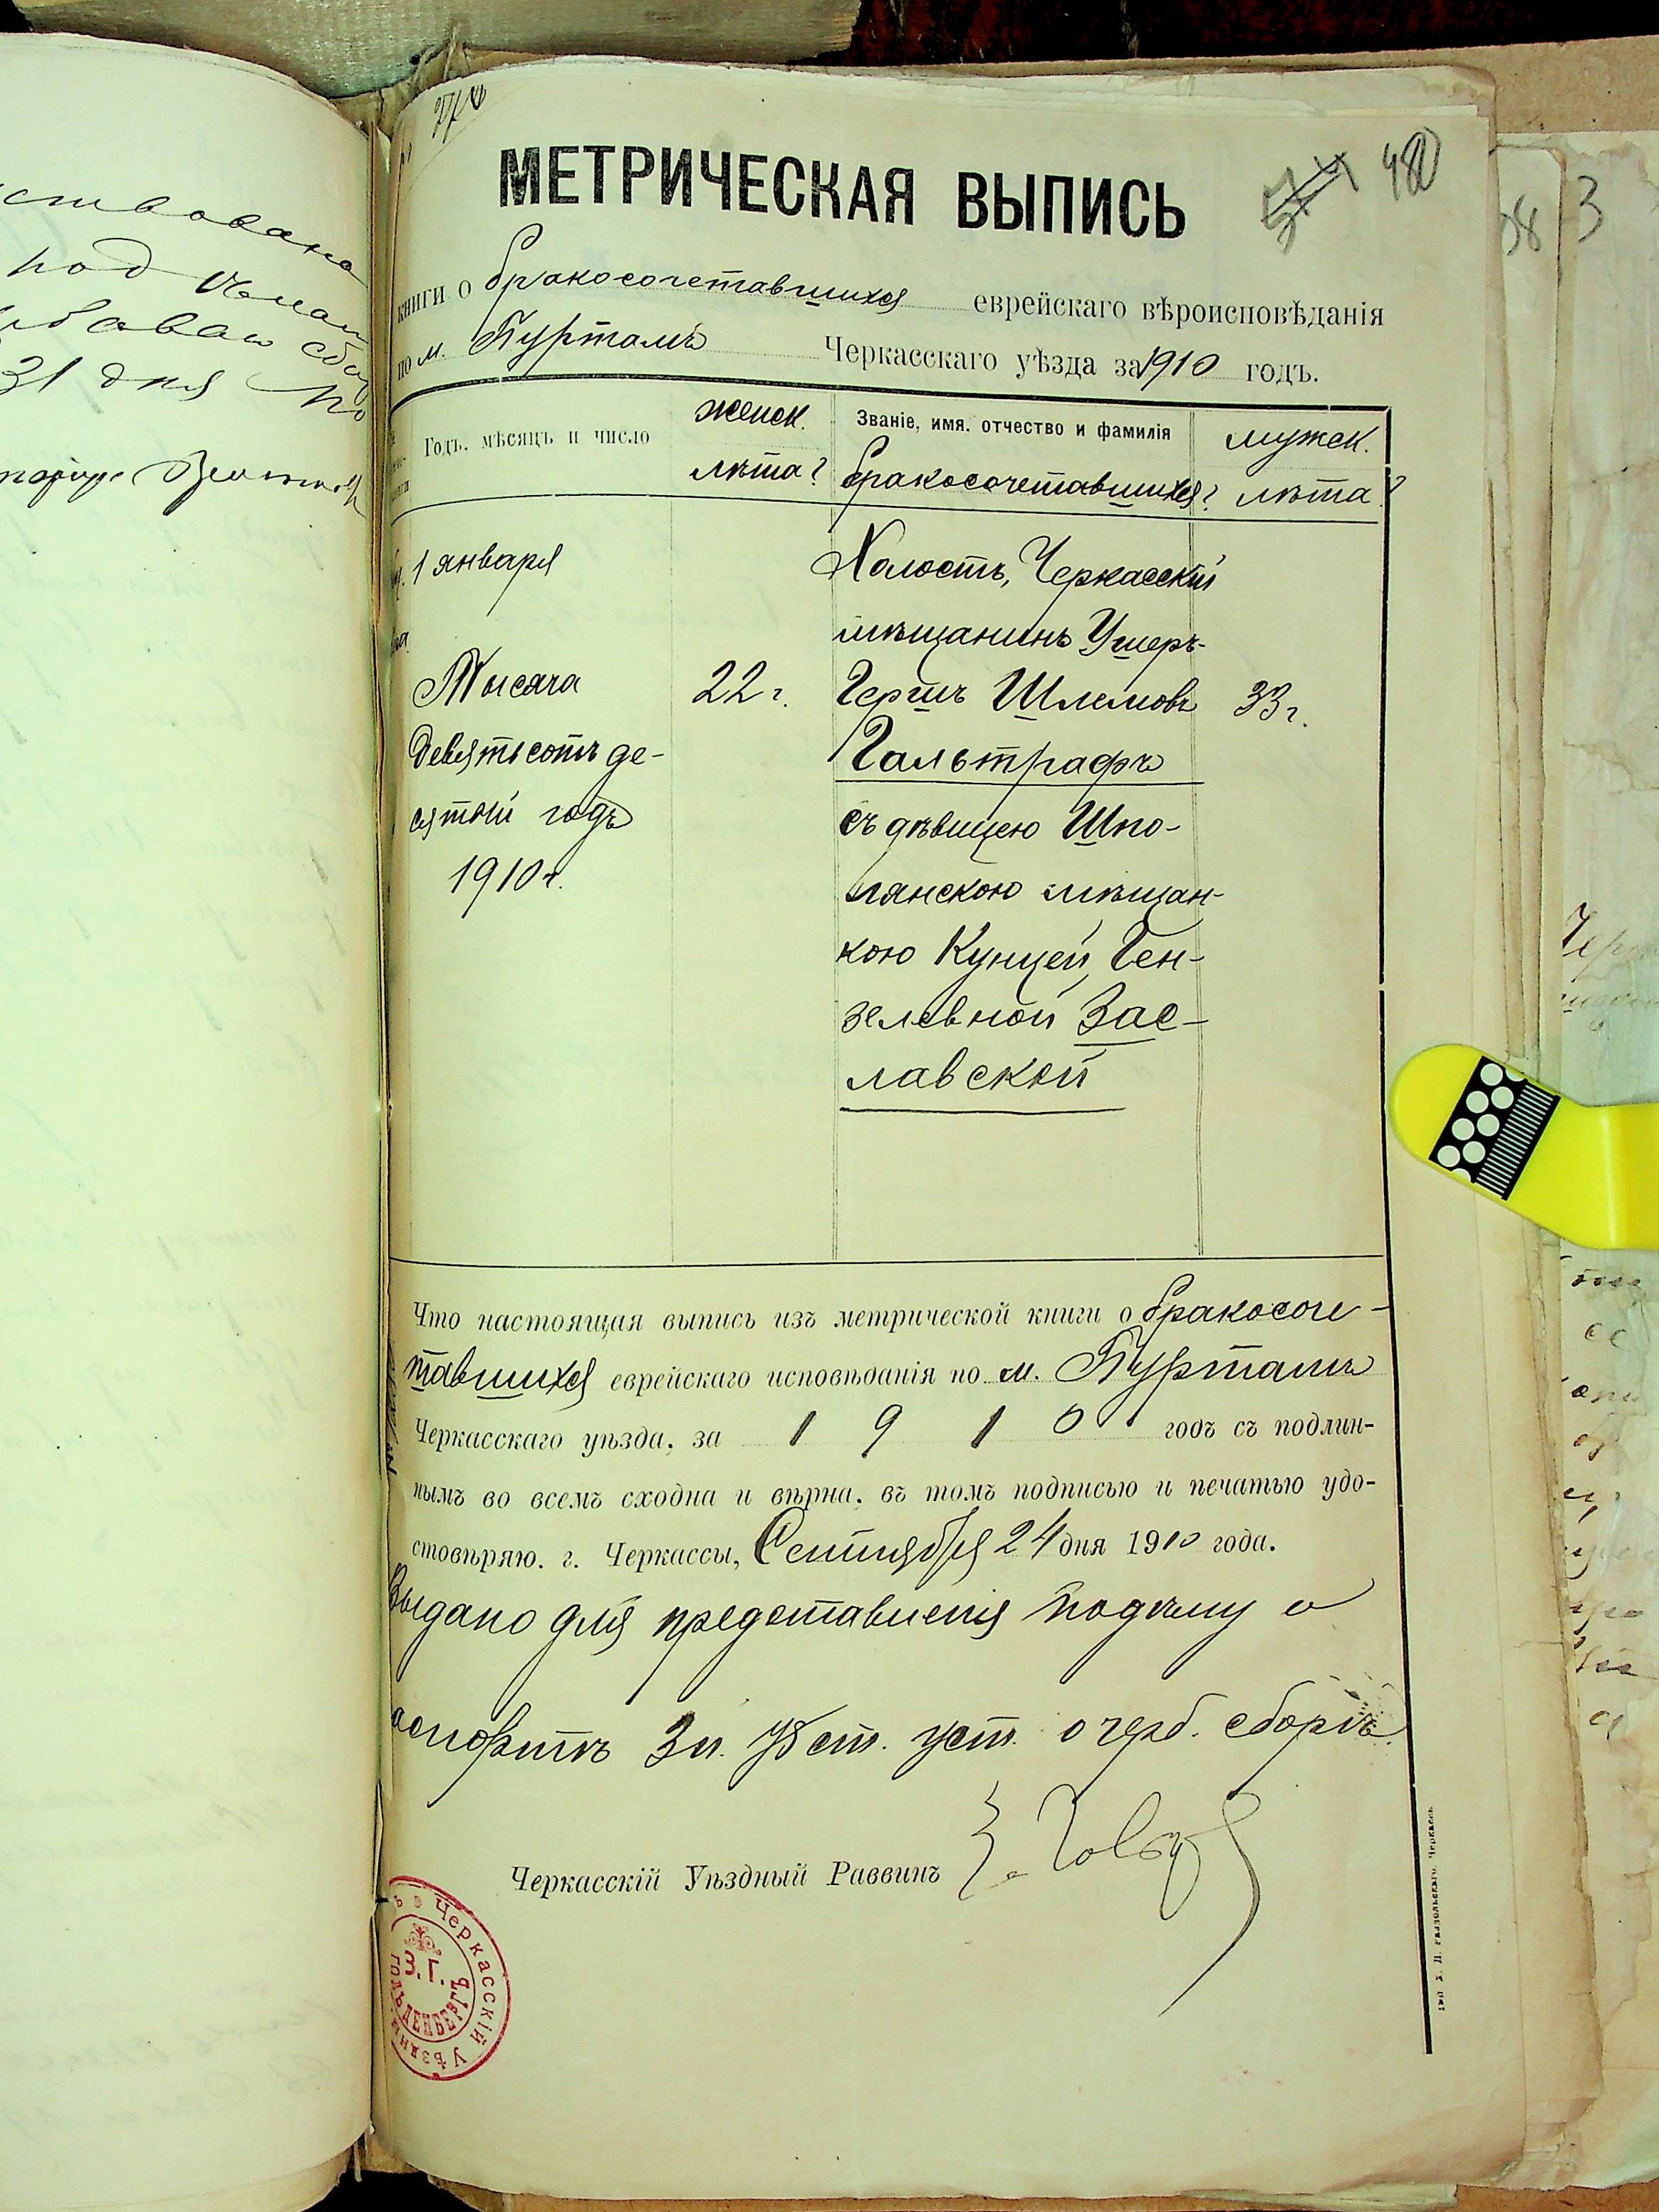 ствована
под
31 дня
МЕТРИЧЕСКАЯ ВЫПИСЬ
480
38
3
книги о бракосочетавшихся еврейскаго вѣроисповѣданія
по м. Бурталъ Черкасскаго уѣзда за 1910 годъ.
Годъ, мѣсяцъ и число
женск. лѣта?
Званіе, имя, отчество и фамилія
бракосочетавшихся?
мужск. лѣта?
1 января
Тысяча
девятьсотъ де-
сятый годъ
1910 г.
22 г.
Холостъ, Черкасскій
мѣщанинъ Ушеръ-
Гершъ Шлемовъ
Гальтрафъ
съ дѣвицею Шпо-
лянскою мѣщан-
кою Кунцей, Ген-
зелевной Зас-
лавской
33 г.
Что настоящая выпись изъ метрической книги о бракосоче-
тавшихся еврейскаго исповѣданія по м. Бурталъ
Черкасскаго уѣзда, за 1910 годъ съ подлин-
нымъ во всемъ сходна и вѣрна, въ томъ подписью и печатью удо-
стовѣряю. г. Черкассы, Сентября 24 дня 1910 года.
Выдано для представленія
3 п. ст. уст. о герб. сборѣ.
Черкасскій Уѣздный Раввинъ
Черкасскій Уѣздн
З. Г.
ГОЛЬДЕНБЕРГЪ